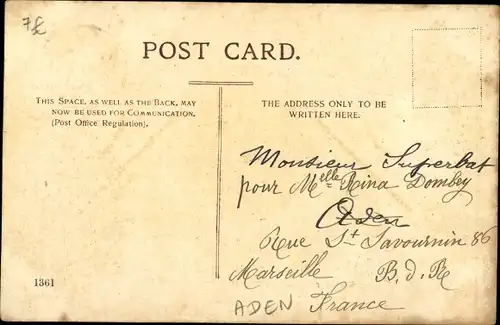 7£
POST CARD.
THIS SPACE, AS WELL AS THE BACK, MAY
NOW BE USED FOR COMMUNICATION.
(Post Office Regulation).
THE ADDRESS ONLY TO BE
WRITTEN HERE.
Monsieur Superbat
pour Melle Rina Dombey
Aden
Rue St Savournin 86
Marseille B. d. R
France
1361
ADEN